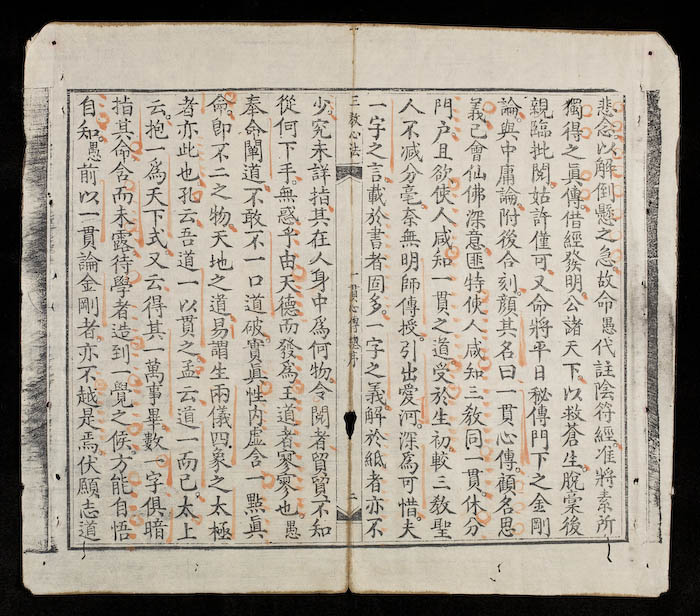 悲念以解倒懸之急故命愚代註陰符經准將素所
獨得之眞傳借經發明公諸天下以救蒼生脫槀後
親臨批閱姑許僅可又命將平日秘傳門下之金剛
論與中庸論附後合刻顏其名曰一貫心傳顧名思
義已會仙佛深意匪特使人咸知三敎同一貫休分
門户且欲使人咸知一貫之道受於生初較三敎聖
人不减分毫柰無明師傳授引出愛河深爲可惜夫
一字之言載於書者固多一字之義解於紙者亦不
三敎心法
一貫心傳總序
二
少究未詳指其在人身中爲何物令閱者貿貿不知
從何下手無惑乎由天德而發爲王道者寥寥也愚
奉命闡道不敢不一口道破實眞性内虛含一點眞
命即不二之物天地之道易謂生兩儀四象之太極
者亦此也孔云吾道一以貫之孟云道一而已太上
云抱一爲天下式又云得其一萬事畢數一字俱暗
指其命含而未露待學者造到一覺之候方能自悟
自知愚前以一貫論金剛者亦不越是焉伏願志道